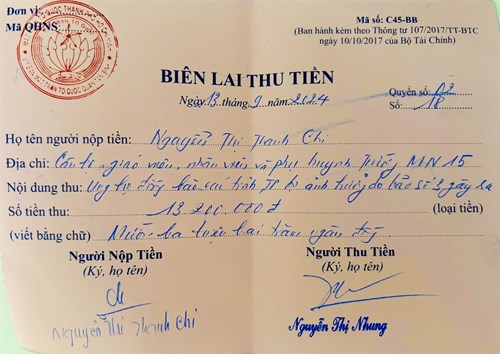 Đơn vị:
Mã QHNS:
Mã số: C45-BB
(Ban hành kèm theo Thông tư 107/2017/TT-BTC
ngày 10/10/2017 của Bộ Tài Chính)
BIÊN LAI THU TIỀN
Ngày 13 tháng 9 năm 2024
Quyển số: 02
Số: 18
Họ tên người nộp tiền: Nguyễn Thị Thanh Chi
Địa chỉ: giáo viên, nhân viên và phụ huynh trường MN 15
Nội dung thu: Ủng hộ đồng bào các tỉnh bị ảnh hưởng do bão số 3 gây ra
Số tiền thu: 13 200 000đ (loại tiền)
(viết bằng chữ) Mười ba triệu hai trăm ngàn đồng
Người Nộp Tiền
(Ký, họ tên)
Người Thu Tiền
(Ký, họ tên)
Nguyễn Thị Thanh Chi
Nguyễn Thị Nhung